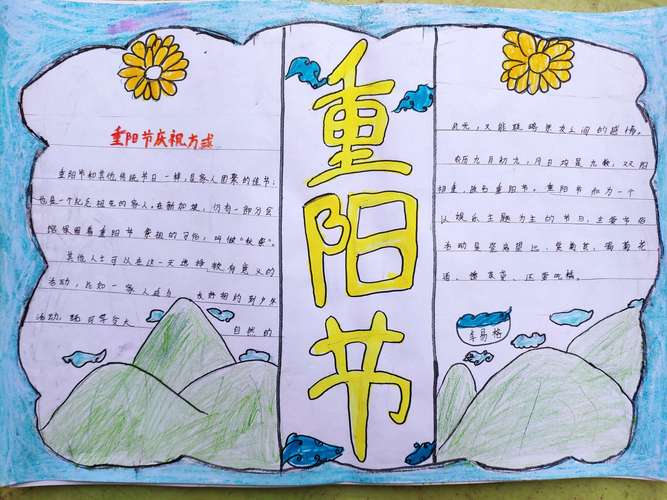 重阳节庆祝方式
重阳节和其他传统节日一样，是家人团聚的佳节；
也是一个纪念祖先的家人。在新加坡，仍有一部分
保留着重阳节祭祖的习俗，叫做“秋祭”。
其他人士可以在这一天选择较有意义的
活动，比如一家人或与友好相约到户外
活动，既可享分大自然的
重阳节
风光，又能联络亲友人间的感情。
农历九月初九，月日均是九数，双阳
相重，故名重阳节。重阳节和为一个
以娱乐主题为主的节日，主要节俗
活动是登高望远、赏菊花、喝菊花
酒、插茱萸、还要吃糕。
李易格